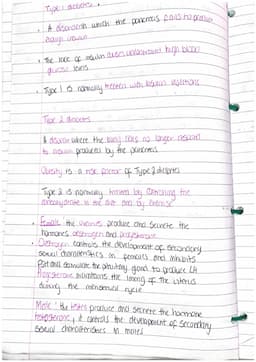 Type 1 diabetes.
• A disorder in which the pancreas fails to produce
enough insulin
• The lack of insulin causes uncontrolled high blood
glucose levels
• Type 1 is normally treated with insulin injections
Type 2 diabetes
A disorder where the body cells no longer respond
to insulin produced by the pancreas
Obesity is a risk factor of Type 2 diabetes
Type 2 is normally treated by controlling the
carbohydrate in the diet and by exercise
• Female: the ovaries produce and secrete the
hormones oestrogen and progesterone
• Oestrogen controls the development of secondary
sexual characteristics in females and inhibits
FSH and stimulate the pituitary gland to produce LH
Progesterone maintains the lining of the uterus
during the menstrual cycle
Male: the testes produce and secrete the hormone
testosterone, it controls the development of secondary
sexual characteristics in males